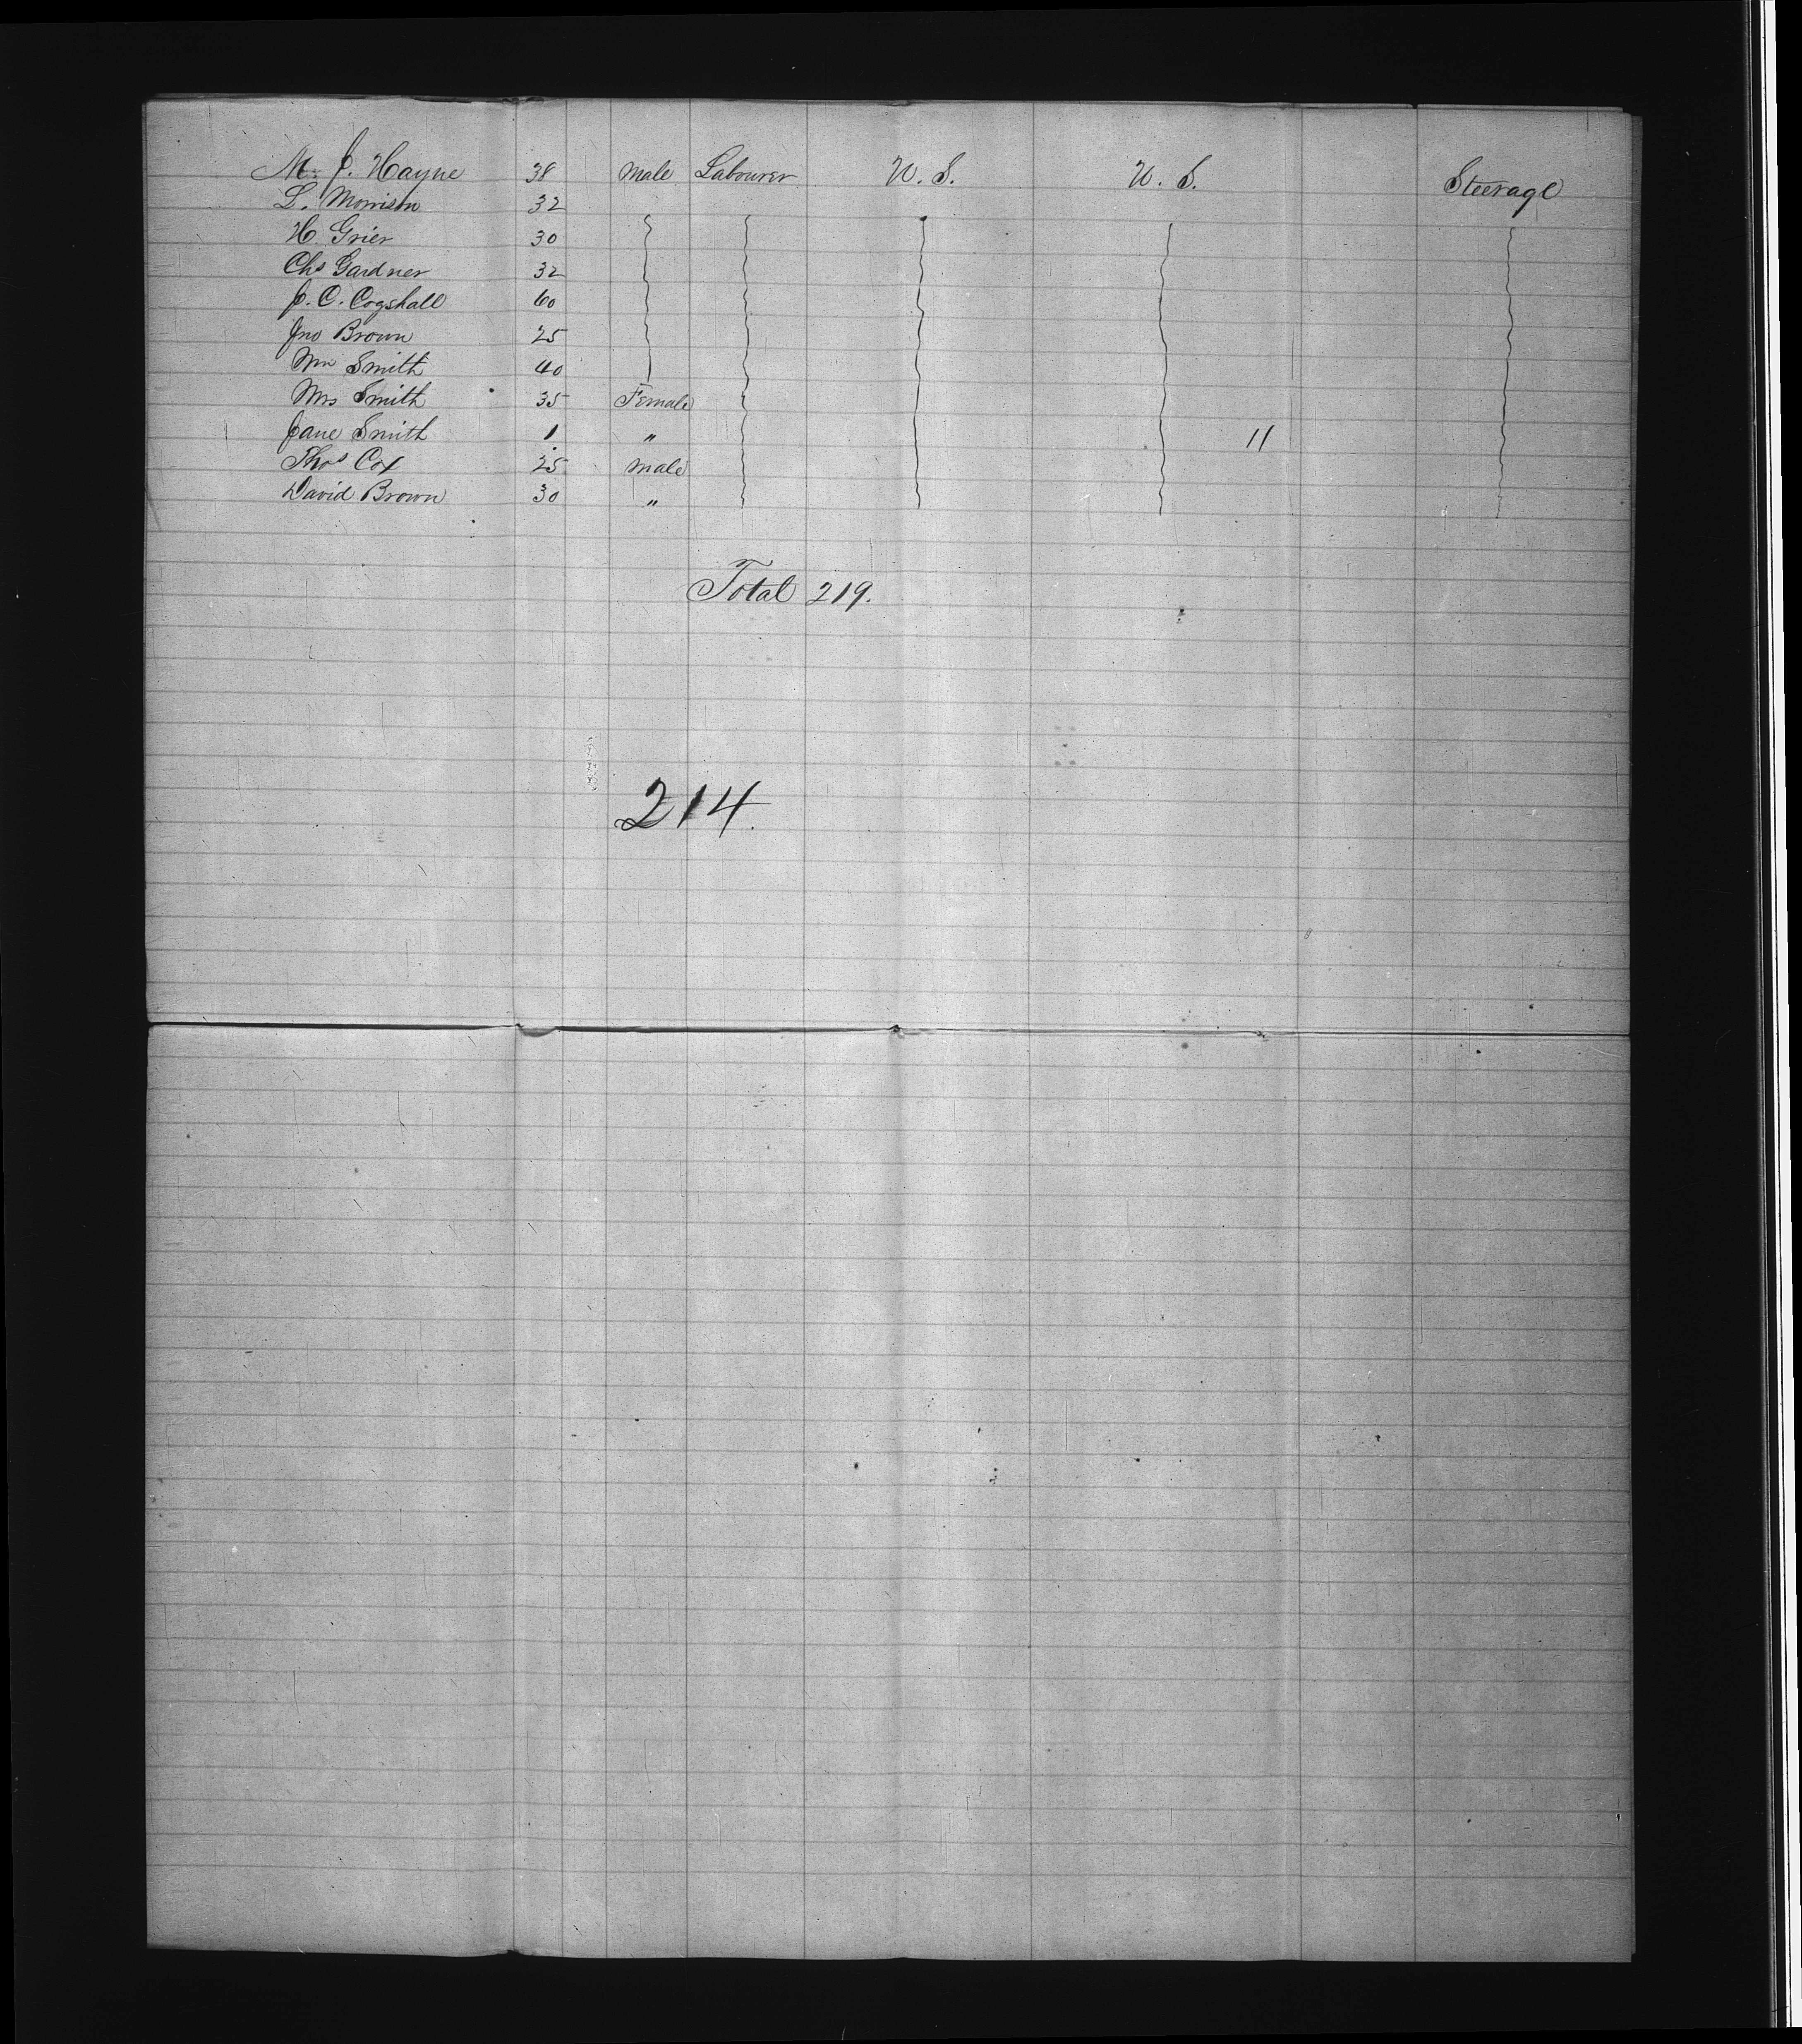 M. J. Hayne 38 Male Labourer U. S. U. S. Steerage
L. Morrison 32
H. Grier 30
Chs Gardner 32
J. C. Cogshall 60
Jno Brown 25
Wm Smith 40
Mrs Smith 35 Female
Jane Smith 1 " 11
Thos Cox 25 Male
David Brown 30 "
Total 219.
214.